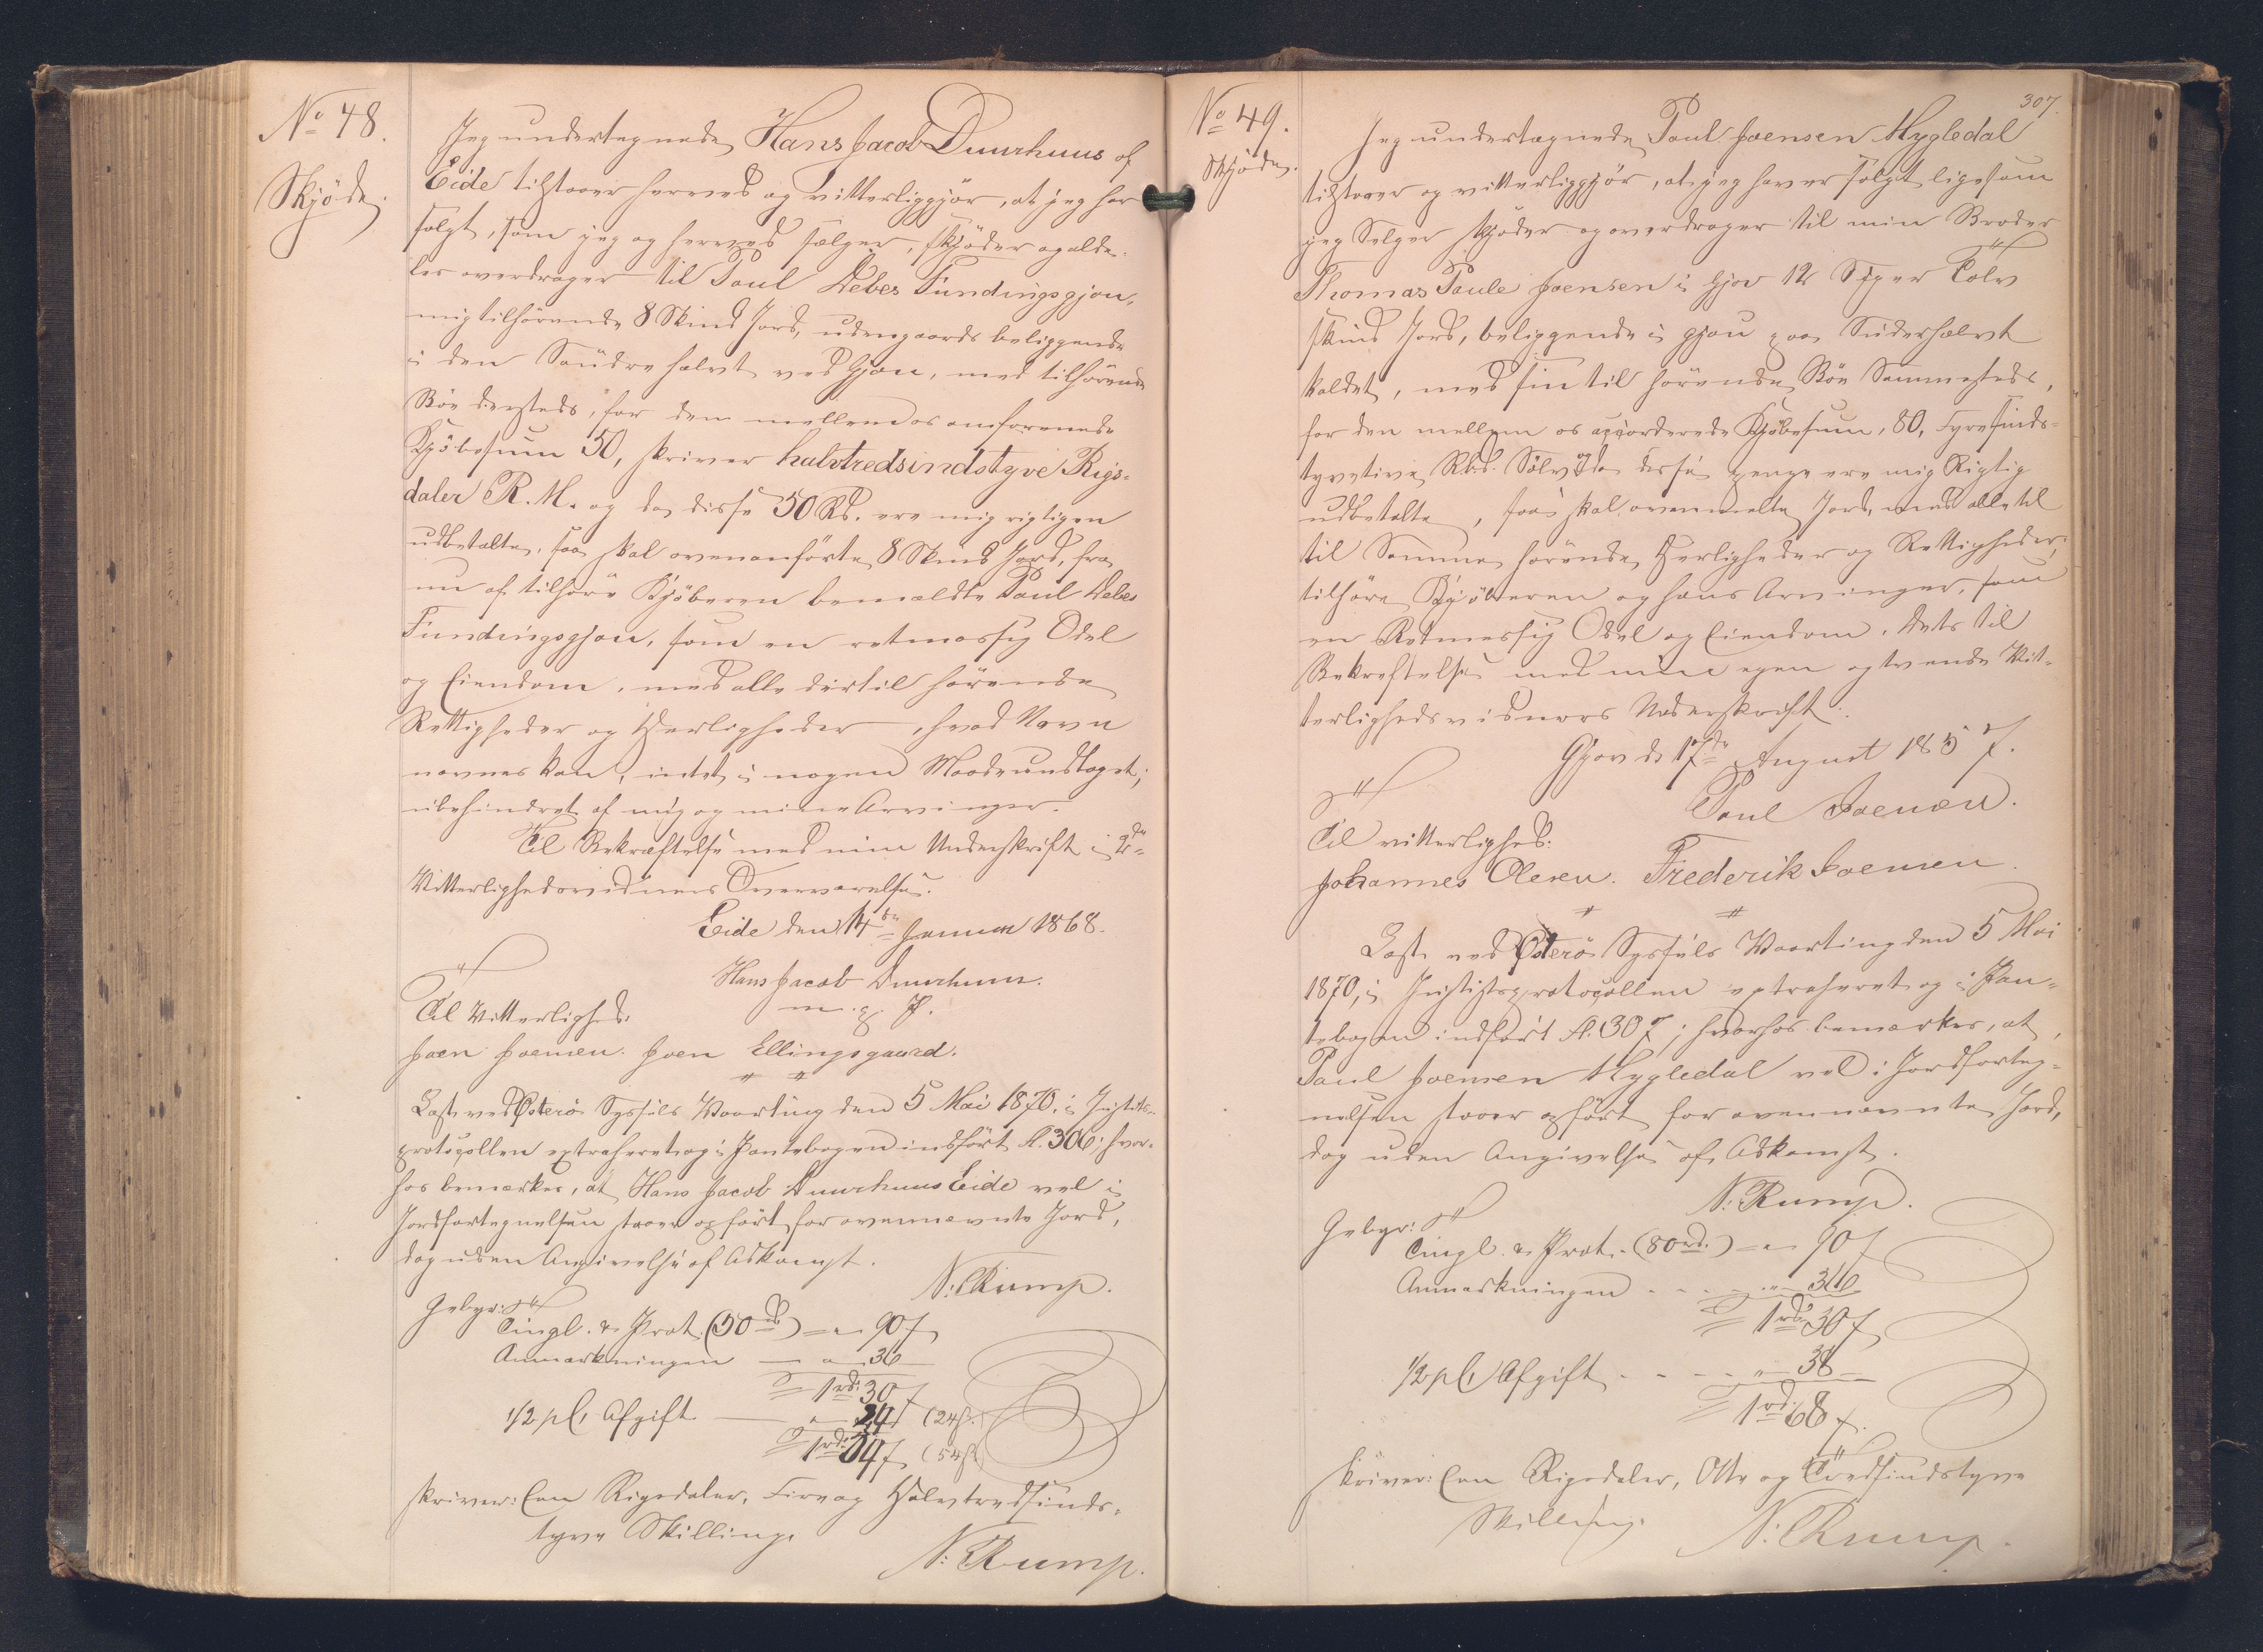 No 48.
Skjöde.
Jeg undertegnede Hans Jacob Duurhuus af
Eide tilstaaer herved og vitterliggjör, at jeg har
solgt, som jeg og herved sælger, skjöder og alde-
les overdrager til Poul Debes Fundingsgjou,
mig tilhörende 8 Skind Jord, udengaards beliggende
i den Söudre halvt ved Gjou, med tilhörende
Böe dersteds, for den mellem os omforenede
Kjöbesum 50, skriver halvtredsindstyve Rigs-
daler R. M. og da disse 50 Rd. ere mig rigtigen
udbetalte, saa skal ovenanförte 8 Skind Jord, fra
nu af tilhöre Kjöberen bemældte Poul Debes
Fundingsgjou, som en retmæssig Odel
og Eiendom, med alle dertil hörende
Rettigheder og Herligheder, hvad Navn
nævnes kan, intet i nogen Maade undtaget,
ubehindret af mig og mine Arvinger.
Til Bekræftelse med min Underskrift i 2de
Vitterlighedsvidners Overværelse.
Eide den 14de Januar 1868.
Hans Jacob Duurhuus.
m. p. P.
Til Vitterlighed:
Joen Joensen. Joen Ellingsgaard.
Læst ved Österö Syssels Vaarting den 5 Mai 1870, i Justits-
protocollen extraheret og i Pantebogen indfört fl. 306; hvor-
hos bemærkes, at Hans Jacob Duurhuus Eide vel i
Jordfortegnelsen staaer opfört for ovennævnte Jord,
dog uden Angivelse af Adkomst.
N: Rump.
Gebyr:
Tingl. & Prot. (50 rd) — " — 90 ß
Anmærkningen — " — 36
1 rd: 30 ß
1/2 pCt Afgift — " 24 (24 ß.)
1 rd: 54 ß (54 ß)
skriver: Een Rigsdaler, Fire og Halvtredsinds-
tyve Skilling.
N: Rump.
307.
No 49.
Skjöde.
Jeg undertegnede Poul Joensen Mygledal
tilstaaer og vitterliggjör, at jeg haver solgt ligesom
jeg Selger skjöder og overdrager til min Broder
Thomas Poule Joensen i Gjov 12 Siger Tolv
skind Jord, beliggende i gjou paa Süderhalvt
kaldet, med sin til hörende Böe Sammesteds,
for den mellem os accorderede Kjöbesum, 80, Fyresinds-
tyvetive Rbd. Sölv da disse penge ere mig Rigtig
udbetalte, saa skal ovenmelte Jord, med alle til
til Samme hörende Herligheder og Rettigheder,
tilhöre Kjöberen og hans Arvinger, som
en Retmessig Odel og Eiendom. Dets til
Bekreftelse med min egen og tvende Vit-
terlighedsvidners Underskrift.
Gjov d: 17de August 1857.
Poul Joensen.
Til vitterlighed:
Johannes Olesen. Frederik Joensen.
Læst ved Österö Syssels Vaarting den 5 Mai
1870, i Justitsprotocollen extraheret og i Pan-
tebogen indfört fl. 307; hvorhos bemærkes, at
Poul Joensen Mygledal vel i Jordforteg-
nelsen staaer opfört for ovennævnte Jord,
dog uden Angivelse af Adkomst.
N: Rump.
Gebyr:
Tingl. & Prot. (80 rd.) — " — 90 ß
Anmærkningen - - - " — 36
1 rd: 30 ß
1/2 pCt Afgift - - - - " — 38
1 rd: 68 ß.
skriver: Een Rigsdaler, Otte og Tredsindstyve
Skilling.
N: Rump.